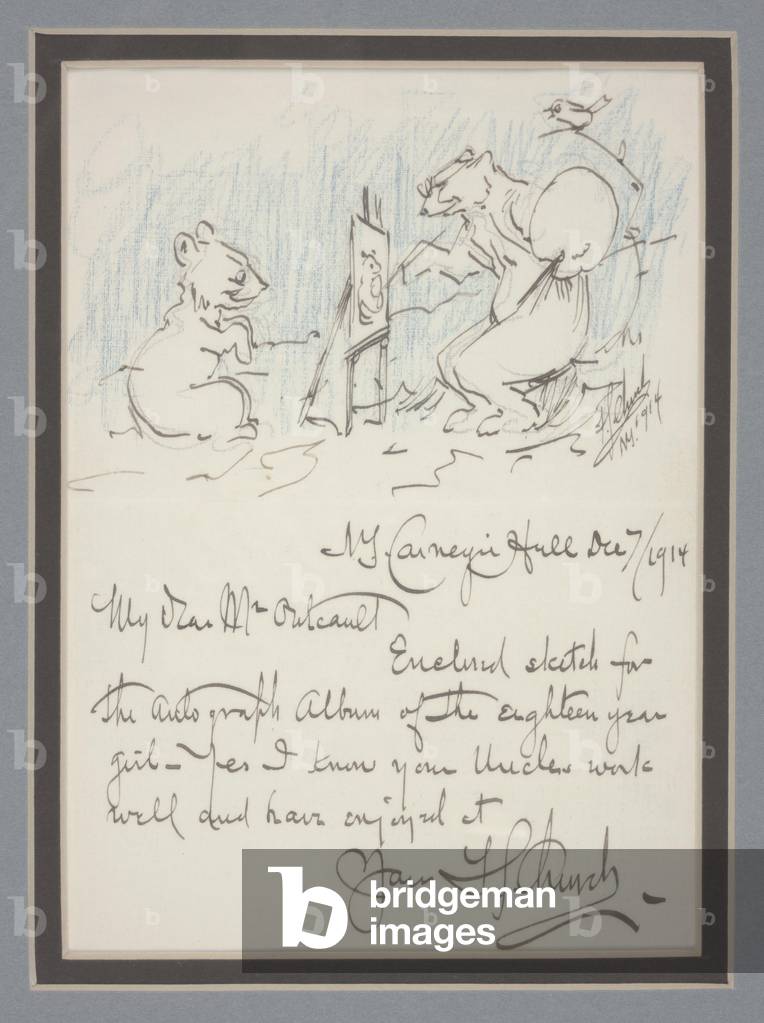 F S Church
N.Y. 914
N.Y. Carnegie Hall Dec 7/1914
My Dear Mr Outcault
Enclosed sketch for
the Autograph Album of the eighteen year
girl – Yes I know your Uncles work
well and have enjoyed it
F S Church
b bridgeman
images